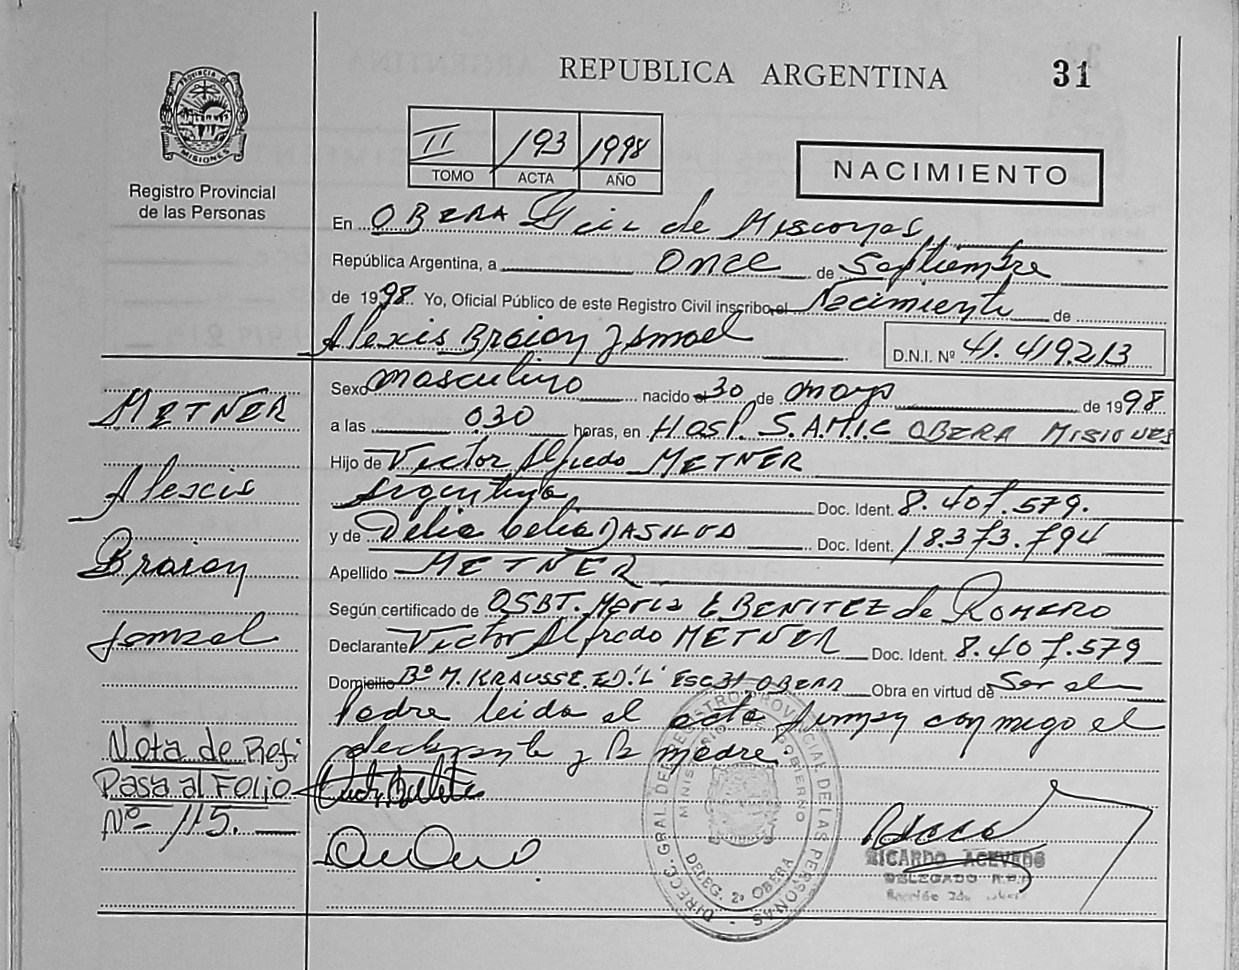 REPUBLICA ARGENTINA
31
PROVINCIA DE MISIONES
Registro Provincial
de las Personas
II 193 1998
TOMO ACTA AÑO
NACIMIENTO
En OBERA de Misiones
República Argentina, a once de Septiembre
de 1998. Yo, Oficial Público de este Registro Civil inscribo el Nacimiento de
Alexis Braian Ismael
D.N.I. Nº 41.419.213
Sexo masculino nacido el 30 de mayo de 1998
a las 030 horas, en Hosp. S.A.M.I.C OBERA MISIONES
Hijo de Victor Alfredo METNER
Argentino Doc. Ident. 8.407.579.
y de Delia Celia DASILVA Doc. Ident. 18.373.794
Apellido METNER
Según certificado de OSBT. Maria E BENITEZ de ROMERO
Declarante Victor Alfredo METNER Doc. Ident. 8.407.579
Domicilio Bº M. KRAUSSE. ED. 'L' ESC 31 OBERA Obra en virtud de Ser el
Padre leida el acta firman conmigo el
declarante y la madre
METNER
Alexis
Braian
Ismael
Nota de Ref:
Pasa al Folio
Nº 115.
DIRECC. GRAL. DEL REGISTRO PROVINCIAL DE LAS PERSONAS
MINISTERIO DE GOBIERNO
DELEG. 2º OBERA
RICARDO ACEVEDO
DELEGADO R.P.P
Sección 2da